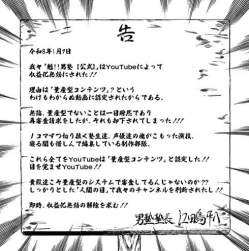 告
令和8年1月7日
我々「魁!!男塾【公式】」はYouTubeによって
収益化無効にされた!!
理由は「量産型コンテンツ」?という
わけもわからぬ動画に認定されたからである。
無論、量産型でないことは一目瞭然であり
再審査請求をしたが、それも却下されてしまった!!
1コマずつ切り抜く塾生達、声優達の魂がこもった演技、
寝る間も惜しんで編集している制作部隊。
これら全てをYouTubeは「量産型コンテンツ」と認定した!!
目を覚ませYouTube!!
貴殿達こそ量産型のシステムで審査してるんじゃないのか??
しっかりとした「人間の目」で我々のチャンネルを判断されたし!!
即時、収益化の解除を求む!!
男塾塾長 江田島平八